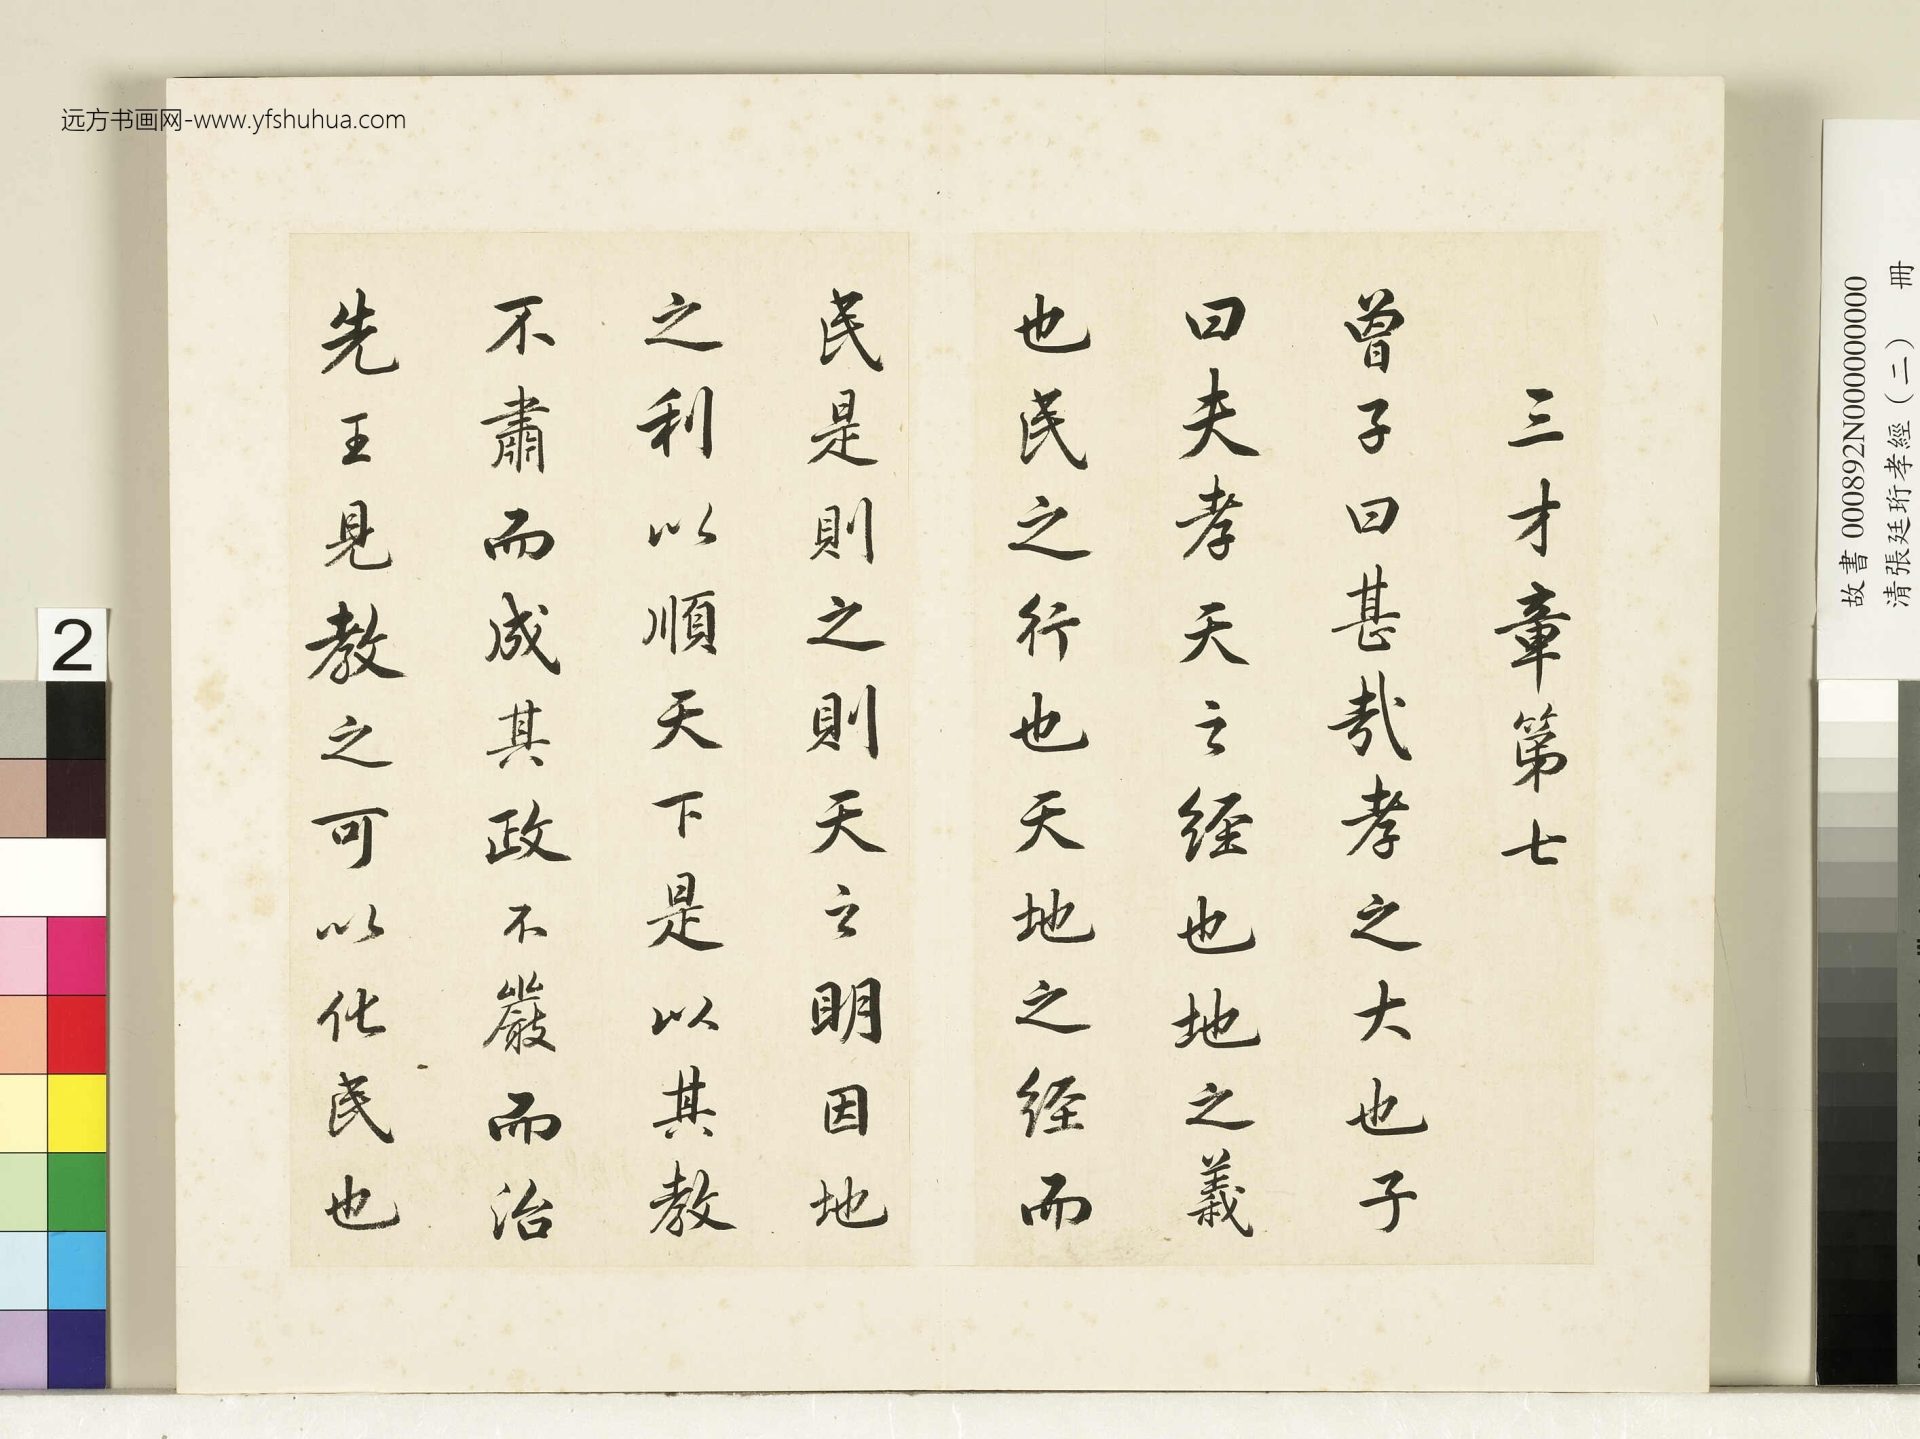 三才章第七
曾子曰甚哉孝之大也子
曰夫孝天之經也地之義
也民之行也天地之經而
民是則之則天之明因地
之利以順天下是以其教
不肅而成其政不嚴而治
先王見教之可以化民也
远方书画网-www.yfshuhua.com
故書 000892N000000000
清張廷珩孝經(二) 冊
2